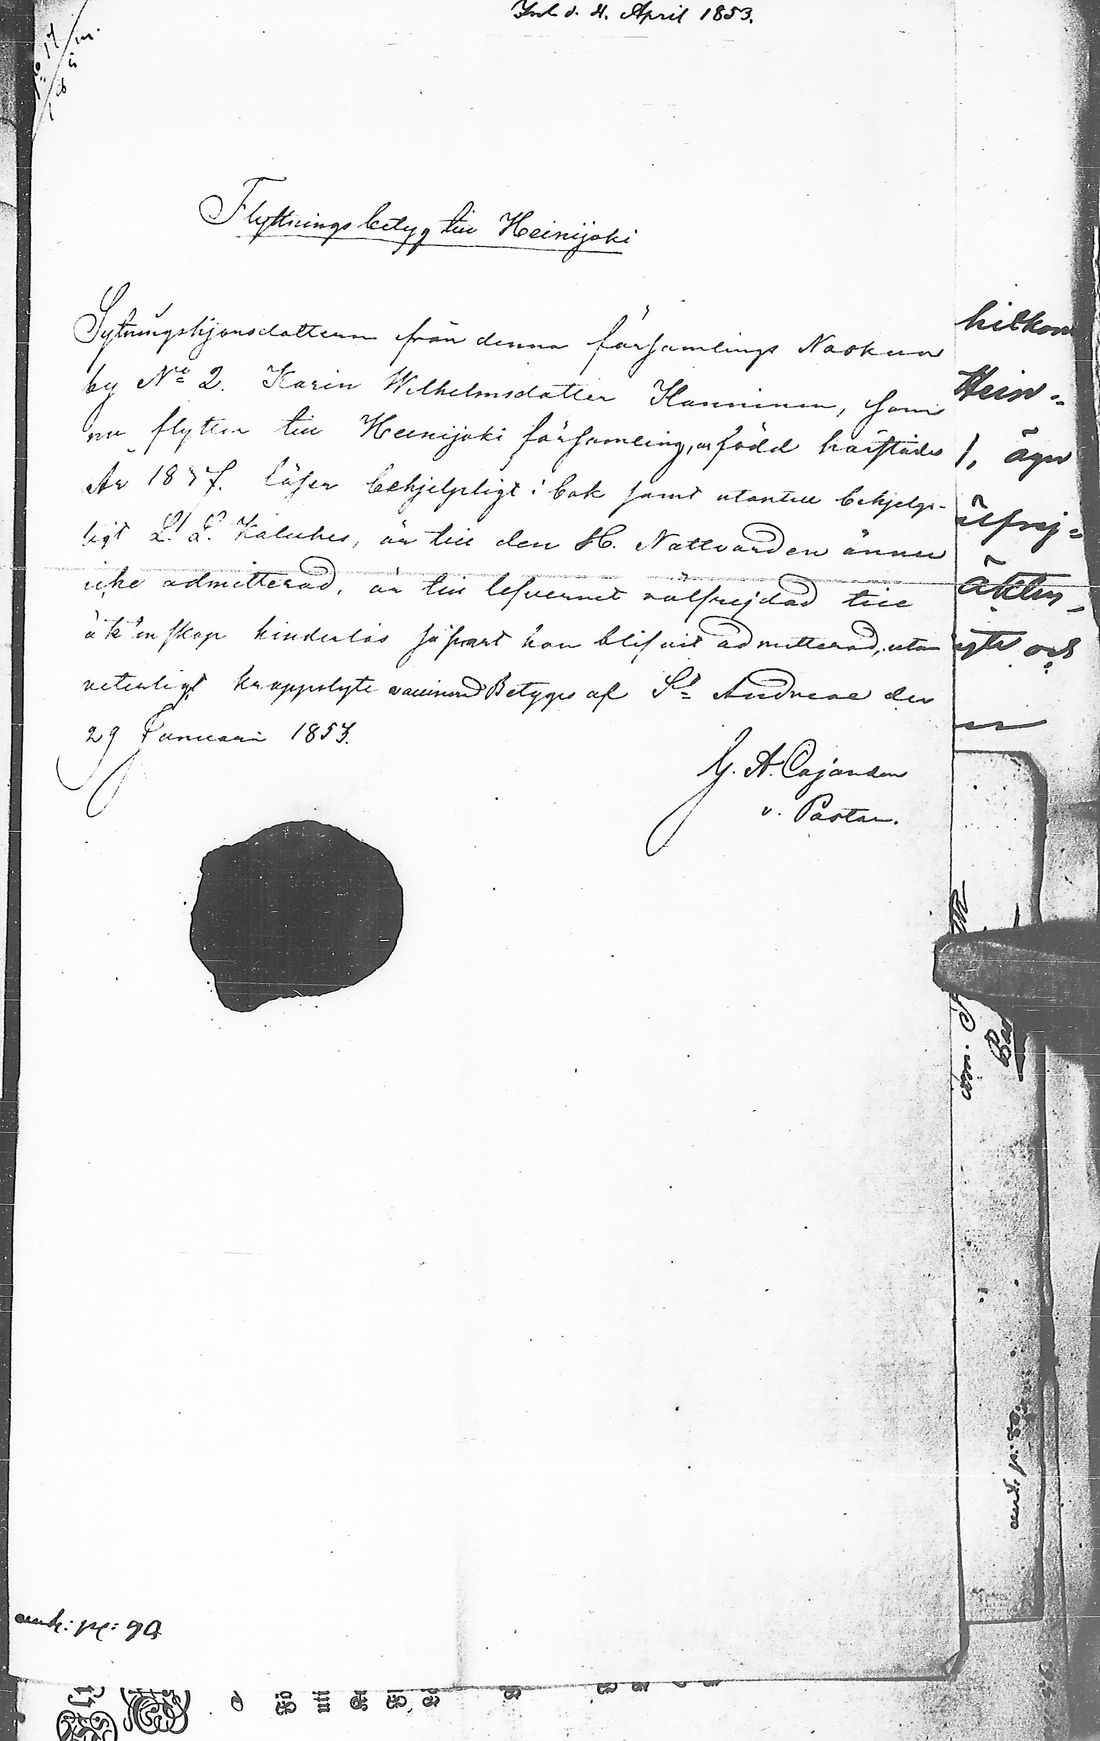 Inl d. 4. April 1853.
Flyttningsbetyg till Heinijoki
Sytningshjonsdottern från denna församlings Noskua
by No 2. Karin Wilhelmsdotter Kanninen, som
nu flyttar till Heinijoki församling, är född härstädes
År 1837. läser behjelpligt i bok samt utantill behjelp-
ligt L. L. Kateches, är till den H. Nattvarden ännu
icke admitterad, är till lefvernet välfrejdad till
äktenskap hinderlös så snart hon blifvit admitterad, utan
veterligt kroppslyte vaccinerad Betygas af St Andreae den
29 Januari 1853.
G. A. Cajander
v. Pastor.
Hein-
1, äger
älfrej-
äkten-
lyte och